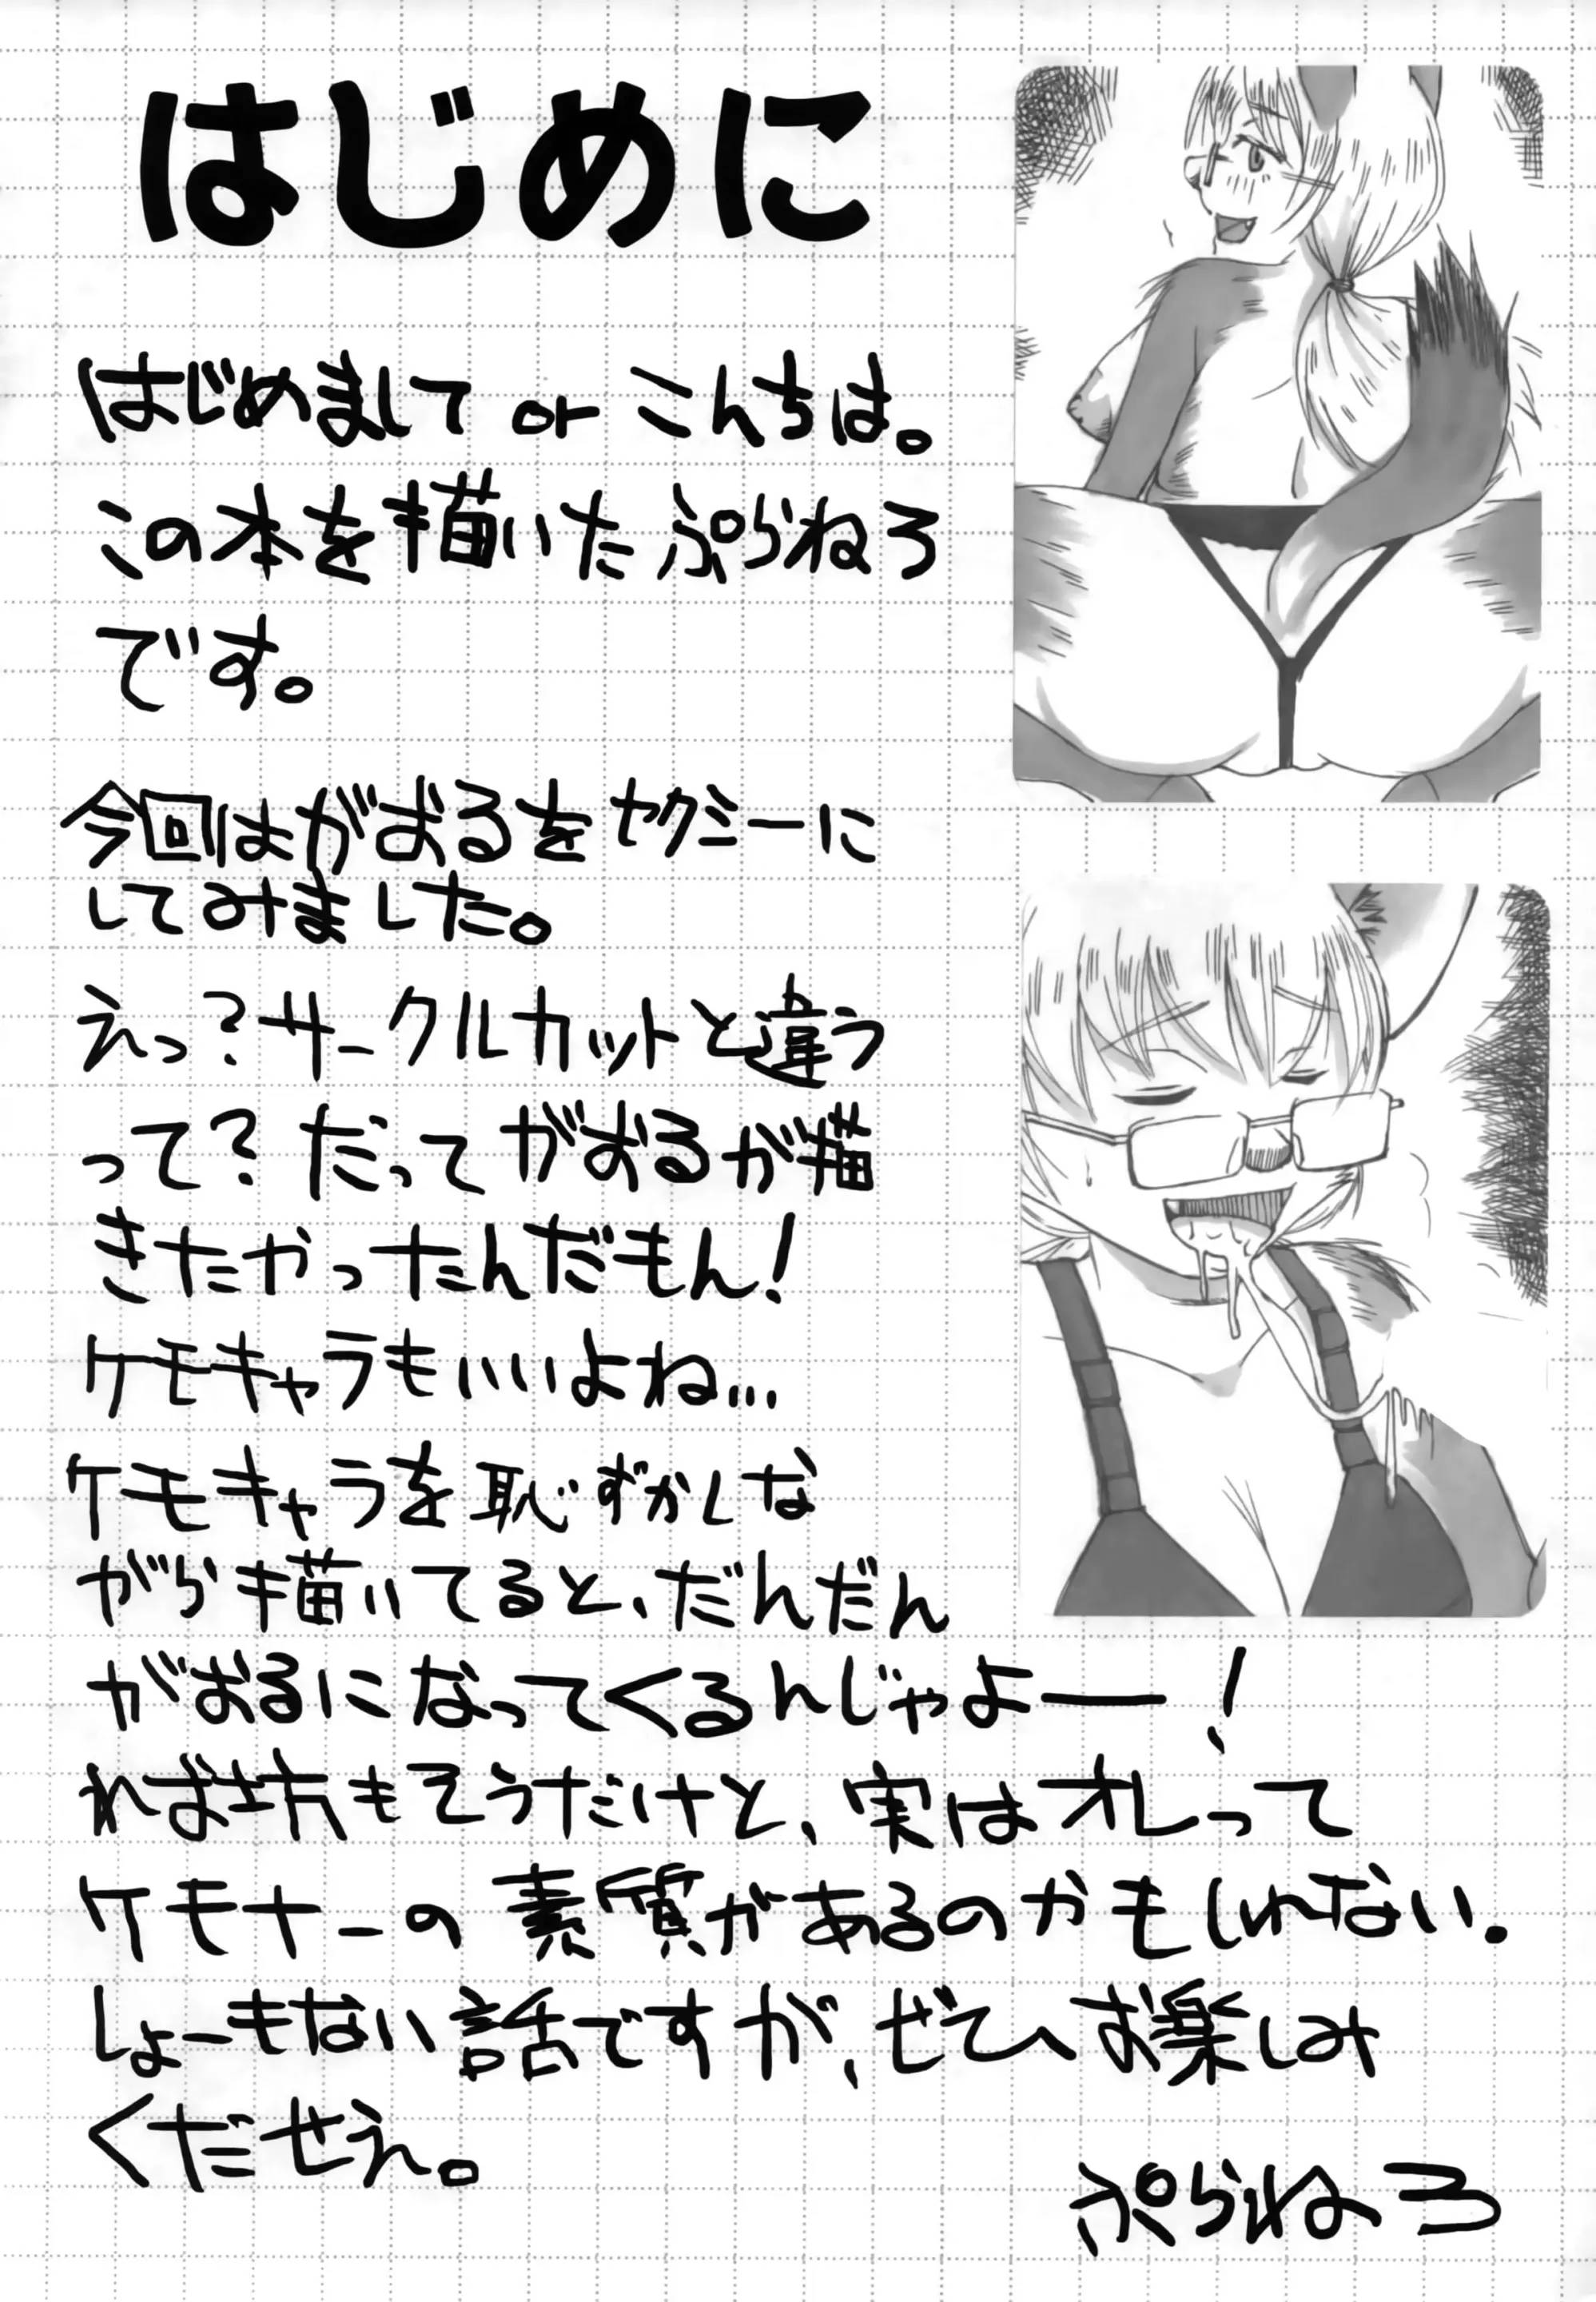 はじめに
はじめまして or こんちは。
この本を描いたぷらねろ
です。
今回はがおるをセクシーに
してみました。
えっ?サークルカットと違う
って?だってがおるが描
きたかったんだもん!
ケモキャラもいいよね...
ケモキャラを恥ずかしな
がら描いてると、だんだん
がおるになってくるんじゃよー!
ねば坊もそうだけど、実はオレって
ケモナーの素質があるのかもしれない.
しょーもない話ですが、ぜひお楽しみ
くだせえ。
ぷらねろ